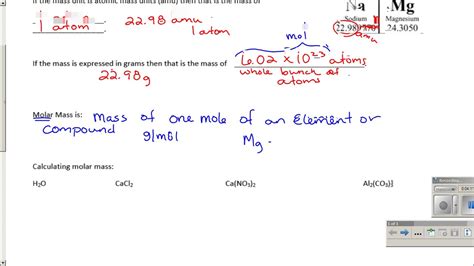 If the mass unit is atomic mass units (amu) then that is the mass of
1 atom 22.98 amu
1 atom
Na Mg
Sodium Magnesium
24.3050
amu
mol
If the mass is expressed in grams then that is the mass of 6.02 x 10^23 atoms
22.98g whole bunch of
atoms
Molar Mass is: mass of one mole of an Element or
compound g/mol Mg
Calculating molar mass:
H2O CaCl2 Ca(NO3)2 Al2(CO3)3